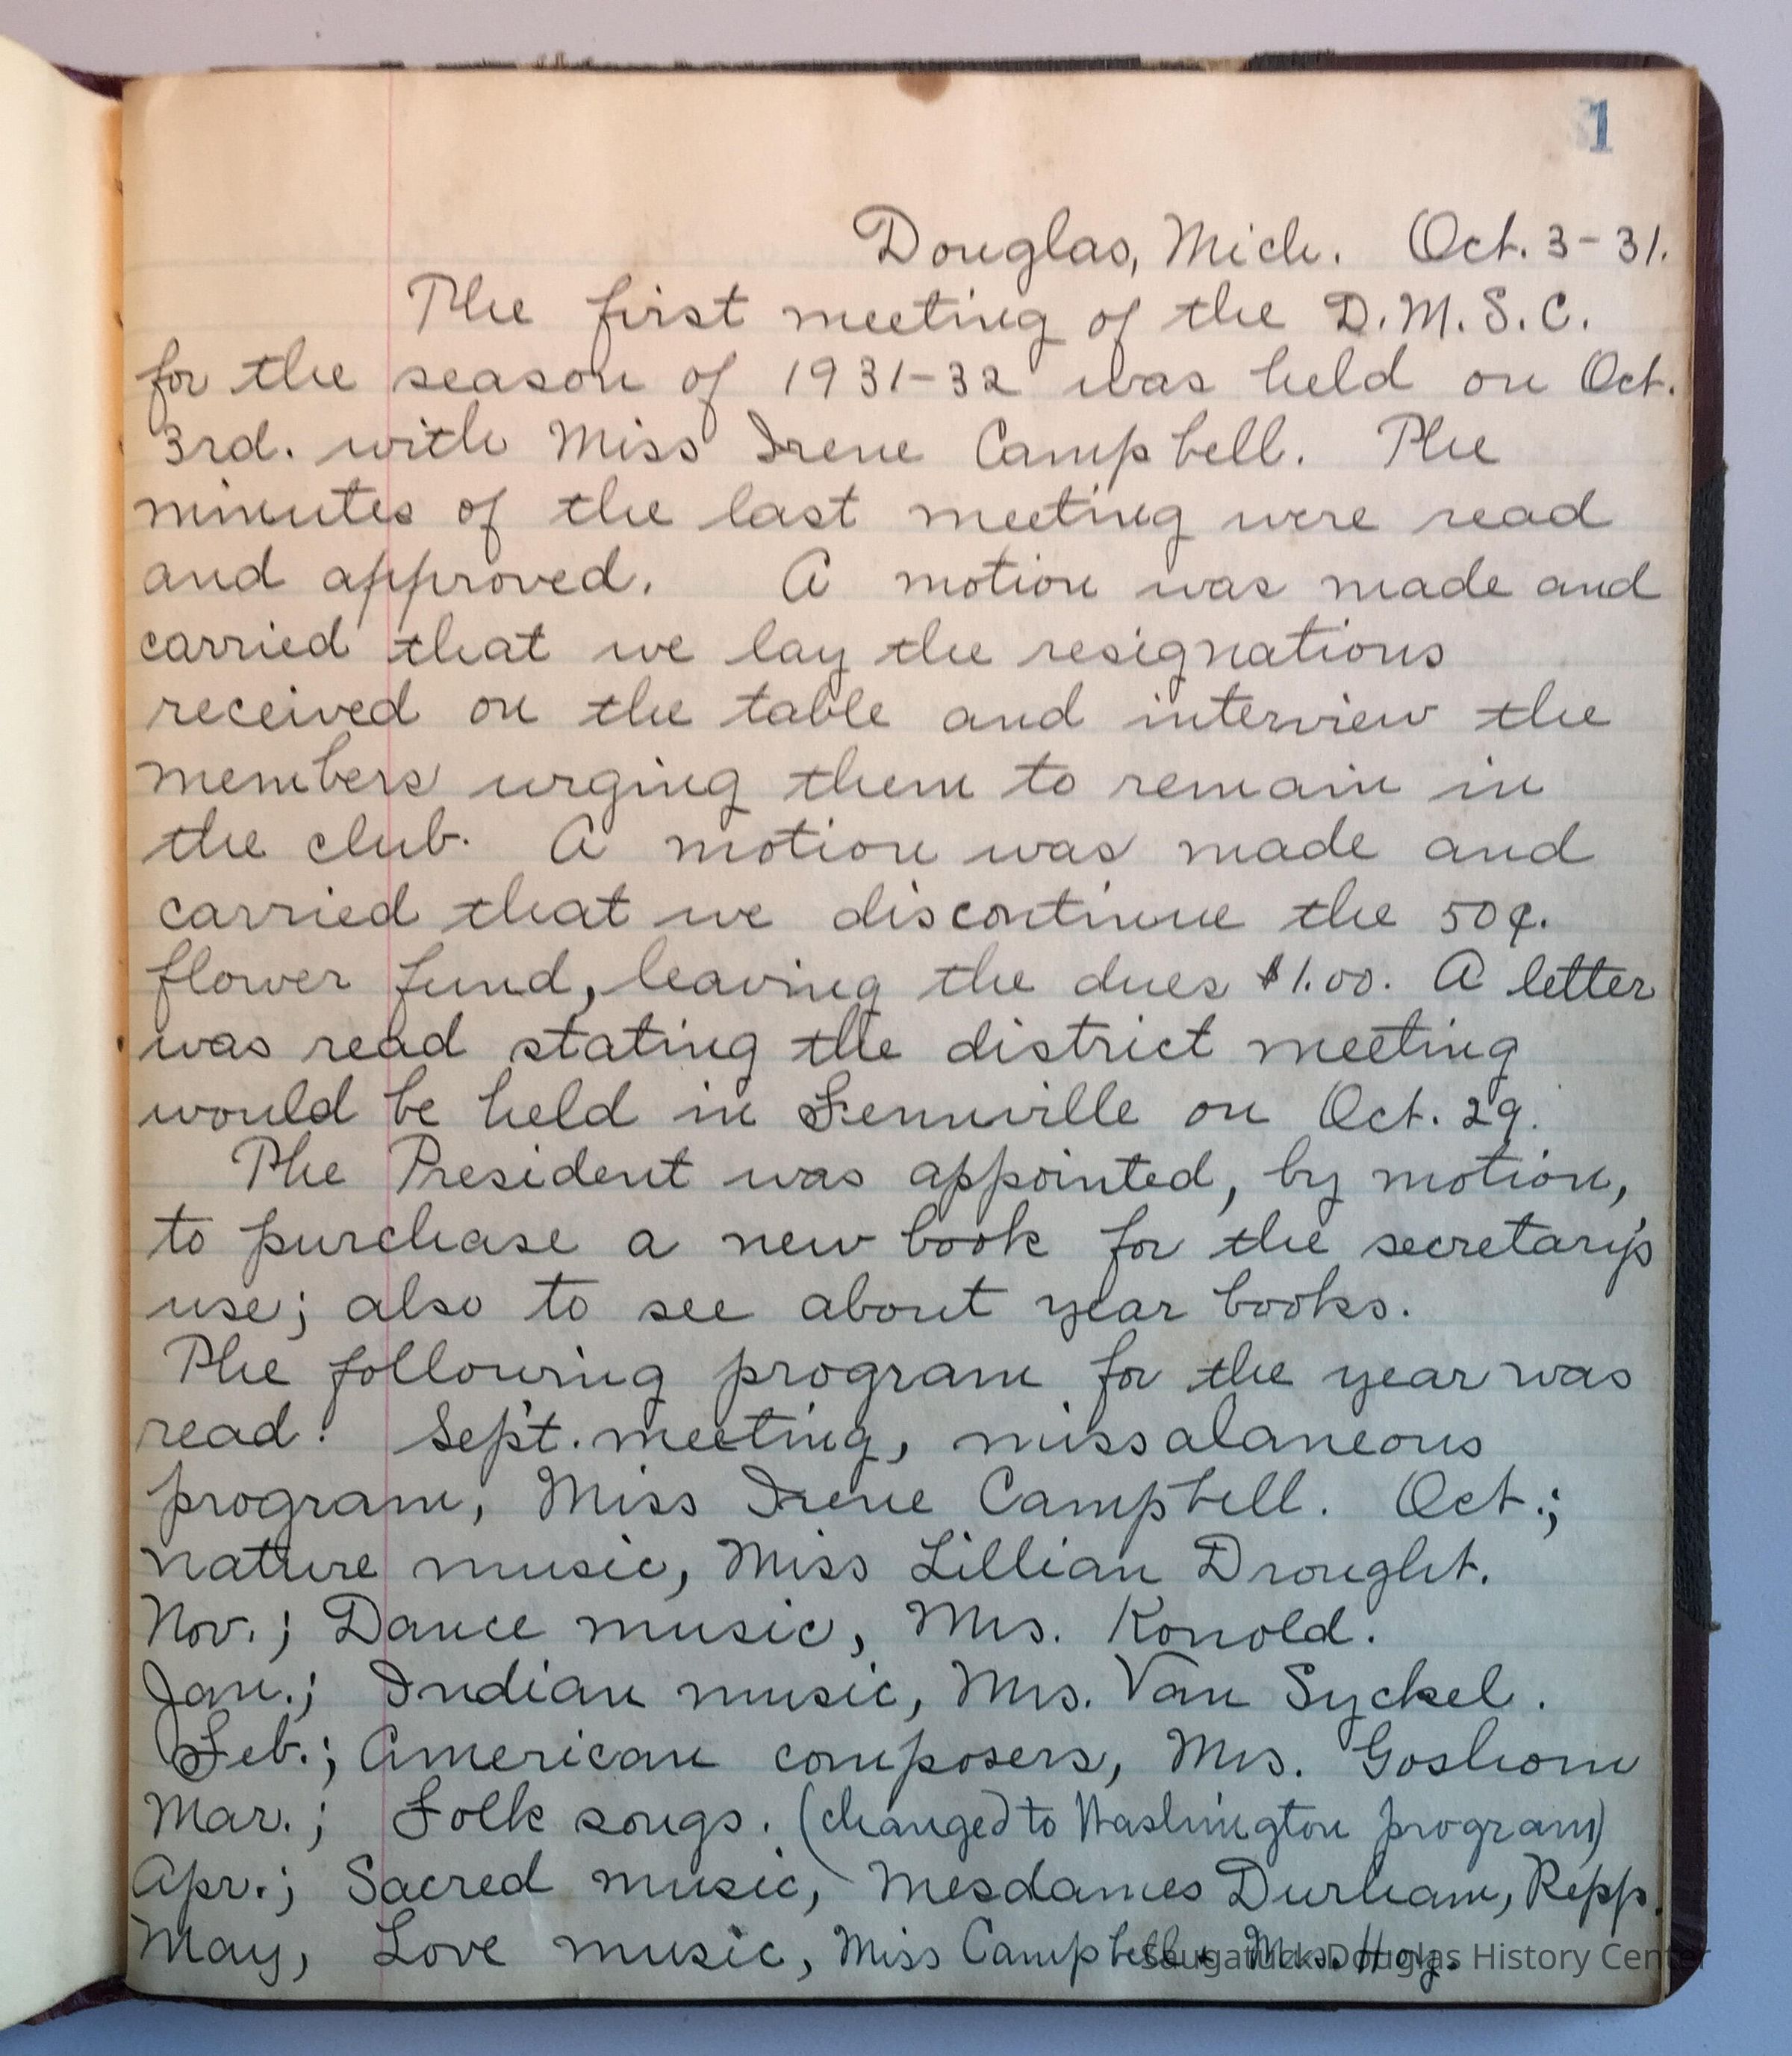 1
Douglas, Mich. Oct. 3-31.
The first meeting of the D.M.S.C.
for the season of 1931-32 was held on Oct.
3rd. with Miss Irene Campbell. The
minutes of the last meeting were read
and approved. A motion was made and
carried that we lay the resignations
received on the table and interview the
members urging them to remain in
the club. A motion was made and
carried that we discontinue the 50¢.
flower fund, leaving the dues $1.00. A letter
was read stating the district meeting
would be held in Fennville on Oct. 29.
The President was appointed, by motion,
to purchase a new book for the secretary's
use; also to see about year books.
The following program for the year was
read: Sep't. meeting, missalaneous
program, Miss Irene Campbell. Oct.;
nature music, Miss Lillian Drought.
Nov.; Dance music, Mrs. Konold.
Jan.; Indian music, Mrs. Van Syckel.
Feb.; American composers, Mrs. Goshorn
Mar.; Folk songs. (changed to Washington program)
Apr.; Sacred music, Mesdames Durham, Repp.
May, Love music, Miss Campbell + Mrs. Hoy.
Saugatuck-Douglas History Center